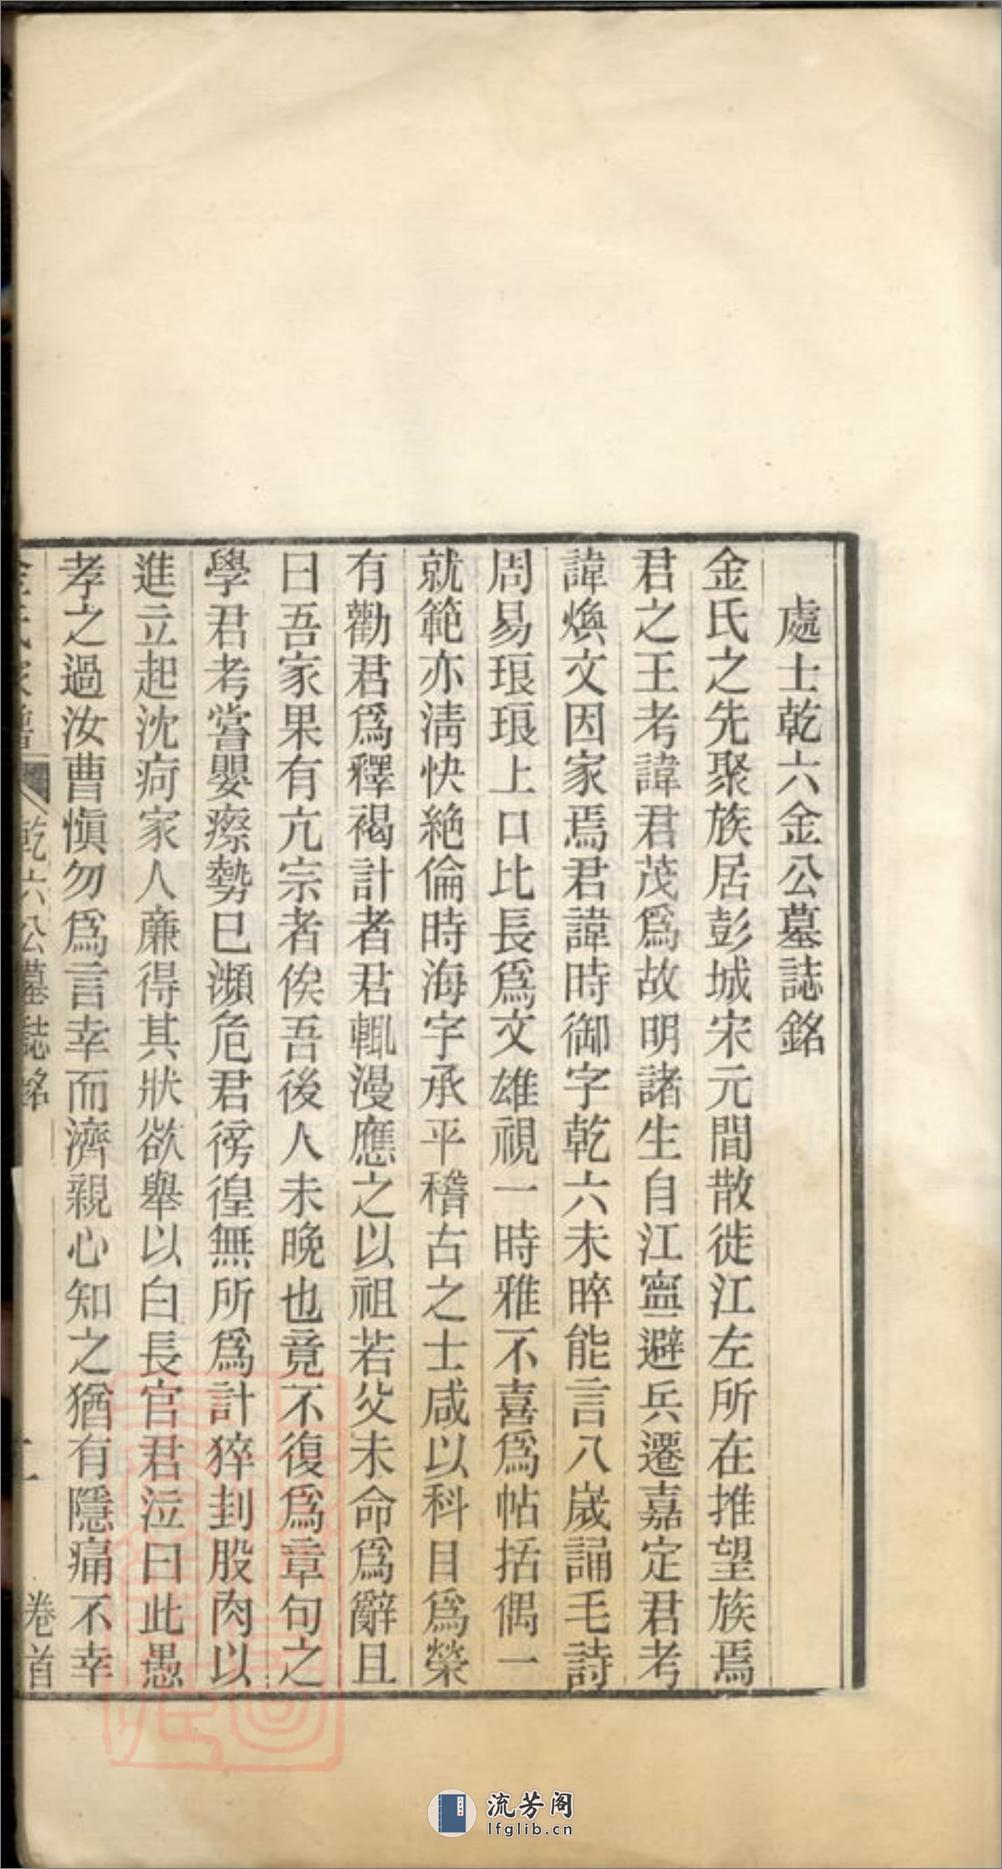 處士乾六金公墓誌銘
金氏之先聚族居彭城宋元間散徙江左所在推望族焉
君之王考諱君茂爲故明諸生自江寧避兵遷嘉定君考
諱煥文因家焉君諱時御字乾六未晬能言八歲誦毛詩
周易琅琅上口比長爲文雄視一時雅不喜爲帖括偶一
就範亦淸快絶倫時海宇承平稽古之士咸以科目爲榮
有勸君爲釋褐計者君輒漫應之以祖若父未命爲辭且
曰吾家果有亢宗者俟吾後人未晚也竟不復爲章句之
學君考嘗嬰瘵勢已瀕危君徬徨無所爲計猝刲股肉以
進立起沈疴家人廉得其狀欲舉以白長官君泣曰此愚
孝之過汝曹愼勿爲言幸而濟親心知之猶有隱痛不幸
金氏家 乾六公墓誌銘 卷首
流芳阁
lfglib.cn